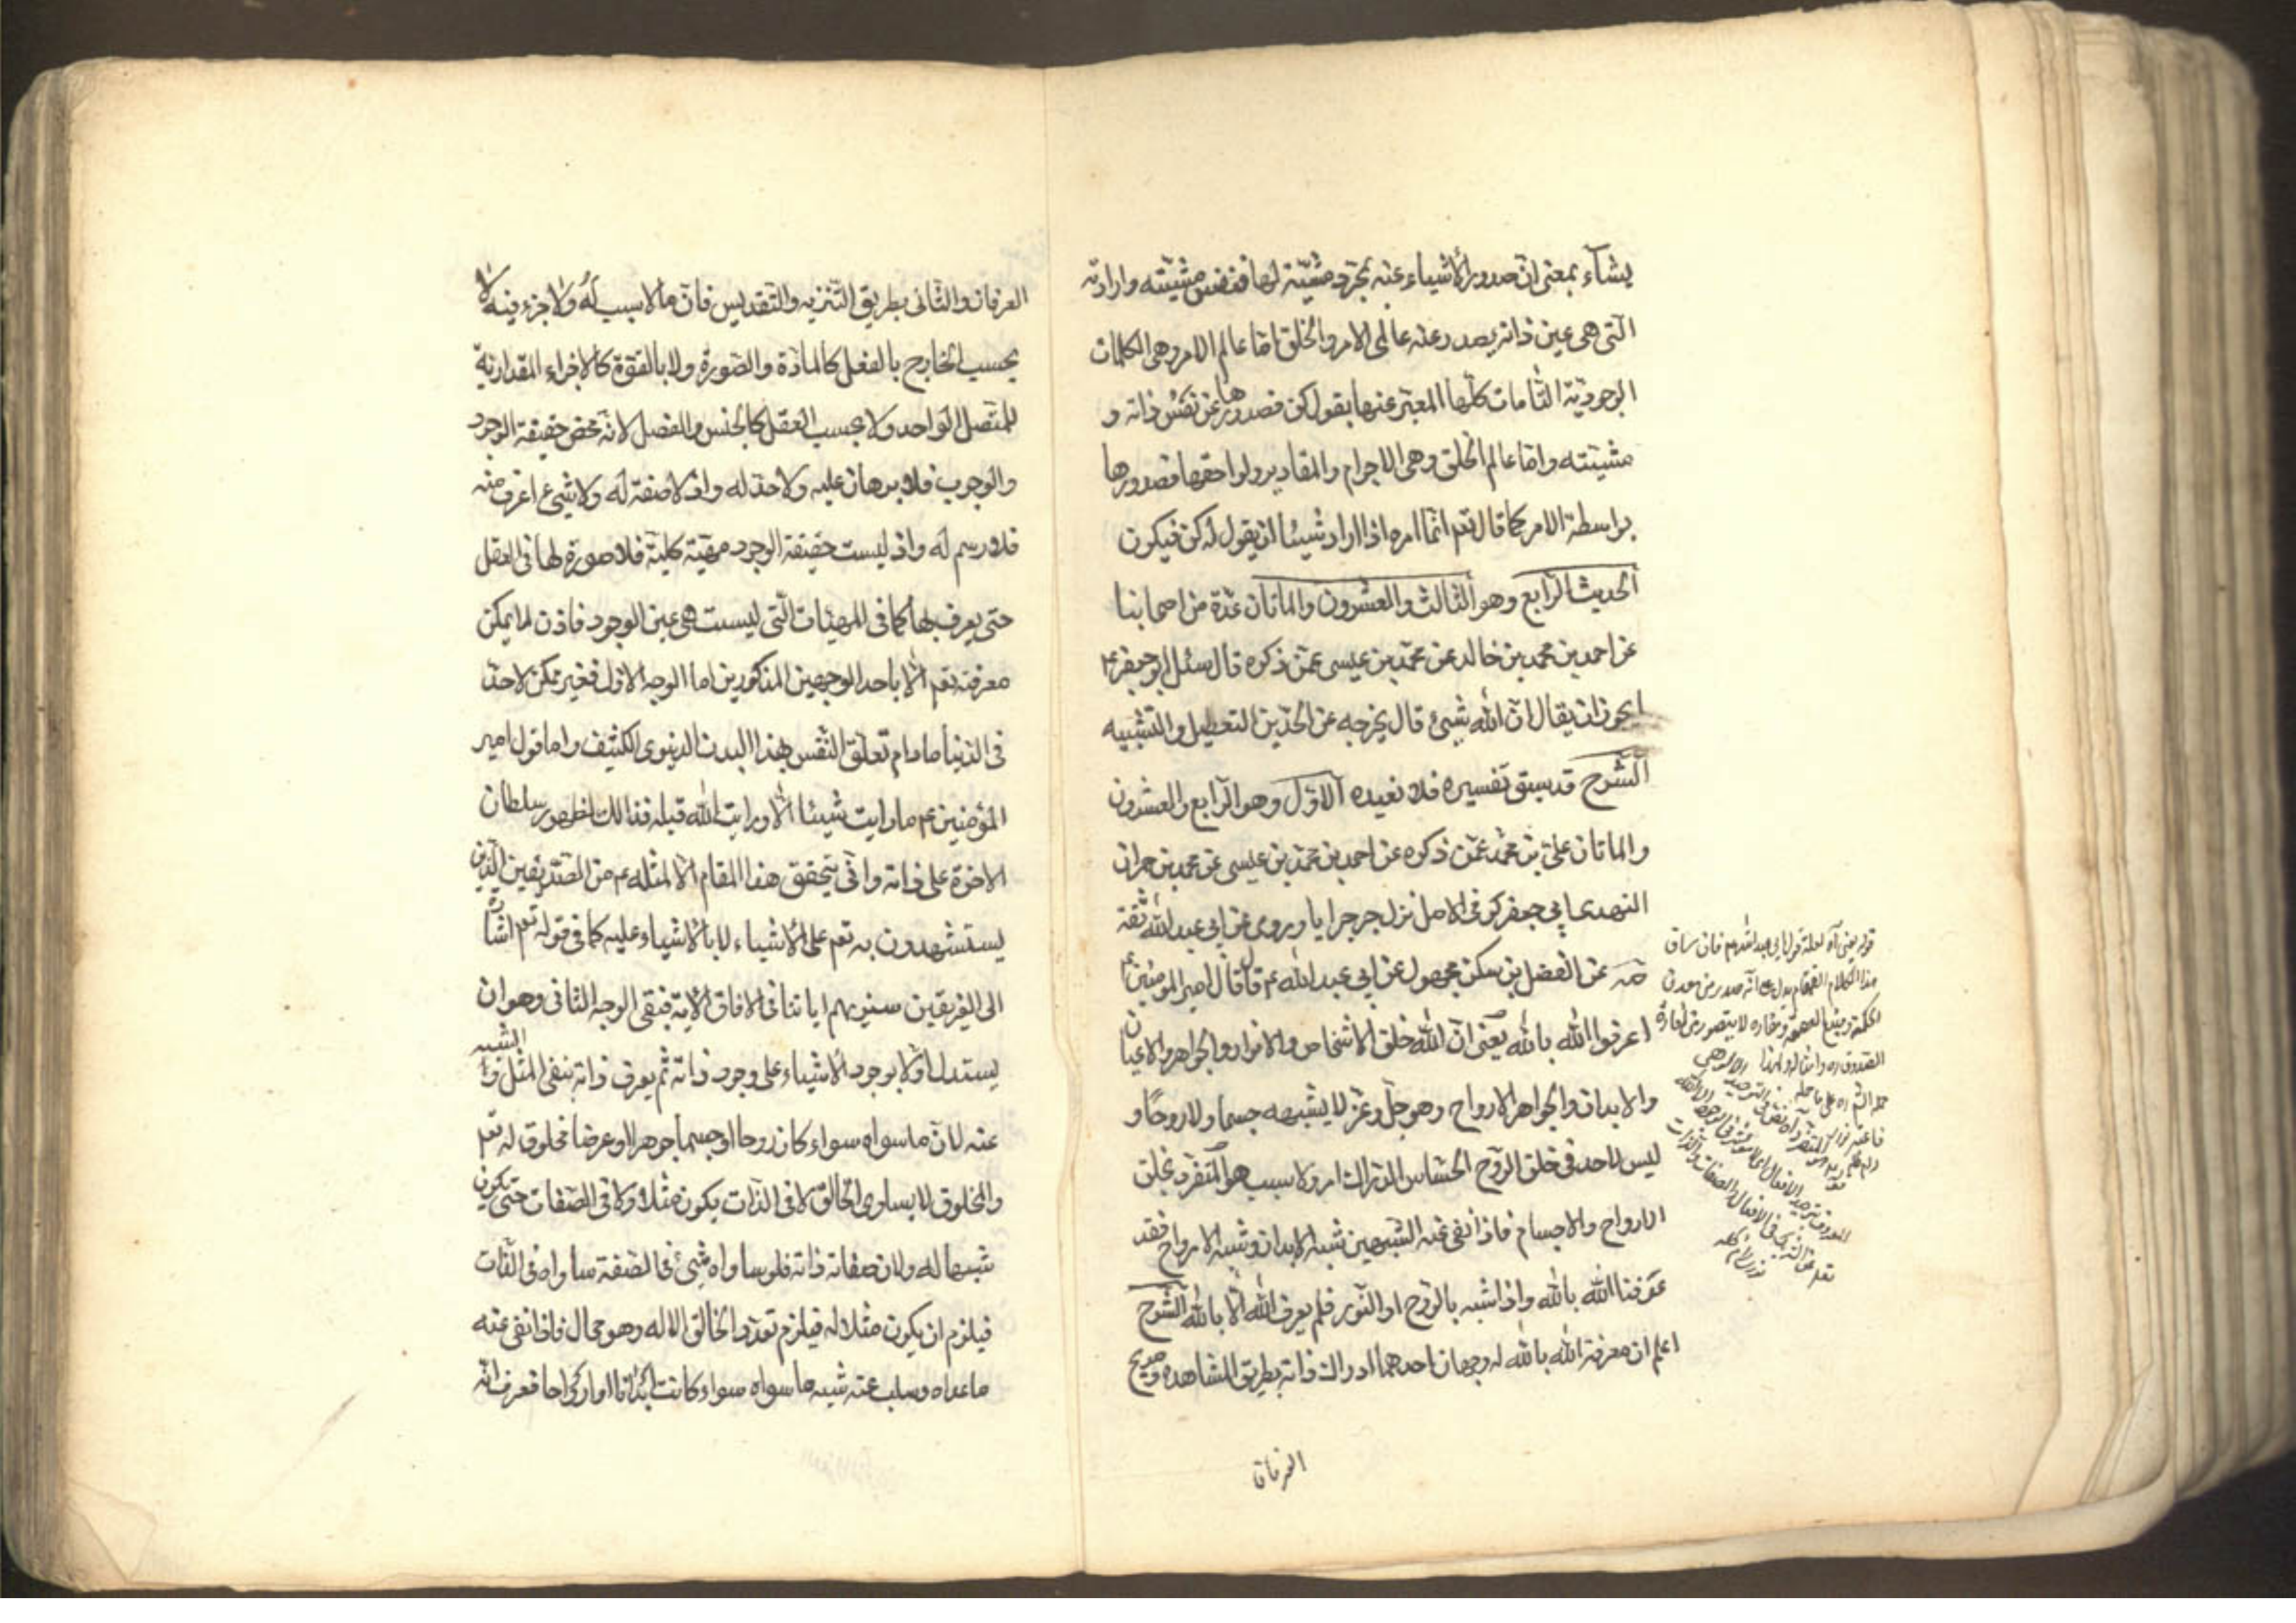 يشاء بمعنى ان صدور الاشياء عنه بمجرد مشيته لها فنفس مشيته وارادته
التى هى عين ذاته يصدر عنه عالمى الامر والخلق اما عالم الامر وهى الكلمات
الوجودية التامات كلها المعبر عنها بقول كن فصدورها عن نفس ذاته و
مشيته واما عالم الخلق وهى الاجرام والمقادير ولواحقها فصدورها
بواسطة الامر كما قال تعم انما امره اذا اراد شيئا ان يقول له كن فيكون
الحديث الرابع وهو الثالث والعشرون والماتان عدة من اصحابنا
عن احمد بن محمد بن خالد عن محمد بن عيسى عمن ذكره قال سئل ابو جعفر ع
ايجوز ان يقال ان الله شيئ قال يخرجه عن الحدين التعطيل والتشبيه
الشرح قد سبق تفسيره فلا نعيده الاول وهو الرابع والعشرون
والماتان على بن محمد عمن ذكره عن احمد بن محمد بن عيسى عن محمد بن حمران
النهدى ابي جعفر كوفى الاصل نزل جرجرايا وروى عن ابي عبد الله ثقة
عن الفضل بن سكن مجهول عن ابي عبد الله ع قال قال امير المومنين ع
اعرفوا الله بالله يعنى ان الله خلق الاشخاص والانوار والجواهر والاعيان
والابدان والجواهر الارواح وهو جل وعز لا يشبهه جسما ولا روحا و
ليس لاحد فى خلق الروح الحساس الدراك امر ولا سبب هو المتفرد بخلق
الارواح والاجسام فاذا نفى عنه الشبهين شبه الابدان وشبه الارواح فقد
عرفنا الله بالله واذا شبه بالروح او النور فلم يعرف الله الا بالله الشرح
اعلم ان معرفة الله بالله له وجهان احدهما ادراك ذاته بطريق المشاهدة وصريح
العرفان
قوله يعنى آه لعله قول ابي عبد الله ع فان سياق
هذا الكلام
العرفان والثانى بطريق التنزيه والتقديس فان ما لا سبب له ولا جزء فيه لا
بحسب الخارج بالفعل كالمادة والصورة ولا بالقوة كالاجزاء المقدارية
للمتصل الواحد ولا بحسب العقل كالجنس والفصل لانه محض حقيقة الوجود
والوجوب فلا برهان عليه ولا حد له واذ لا صفة له ولا شيئ اعرف منه
فلا رسم له واذ ليست حقيقة الوجود مهية كلية فلا صورة لها فى العقل
حتى يعرف بها كما فى المهيات التى ليست هى عين الوجود فاذن لا يمكن
معرفته تعم الا باحد الوجهين المذكورين اما الوجه الاول فغير ممكن لاحد
فى الدنيا ما دام تعلق النفس بهذا البدن الدنيوى الكثيف واما قول امير
المؤمنين ع ما رايت شيئا الا ورايت الله قبله فذالك لظهور سلطان
الاخرة على ذاته وانى يتحقق هذا المقام الا لمثله ع من الصديقين الذين
يستشهدون به تعم على الاشياء لا بالاشياء عليه كما فى قوله تعم اشارة
الى الفريقين سنريهم اياتنا فى الافاق الاية فبقى الوجه الثانى وهو ان
يستدل اولا بوجود الاشياء على وجود ذاته ثم يعرف ذاته بنفى المثل والشبه
عنه لان ما سواه سواء كان روحا او جسما جوهرا او عرضا مخلوق له تعم
والمخلوق لا يساوى الخالق لا فى الذات يكون مثلا ولا فى الصفات حتى يكون
شبيها له ولان صفاته ذاته فلو ساواه شيئ فى الصفة ساواه فى الذات
فيلزم ان يكون مثلا له فيلزم تعدد الخالق الاله وهو محال فاذا نفى عنه
ما عداه وسلب عنه شبه ما سواه سواء كانت ابدانا او ارواحا فعرف انه